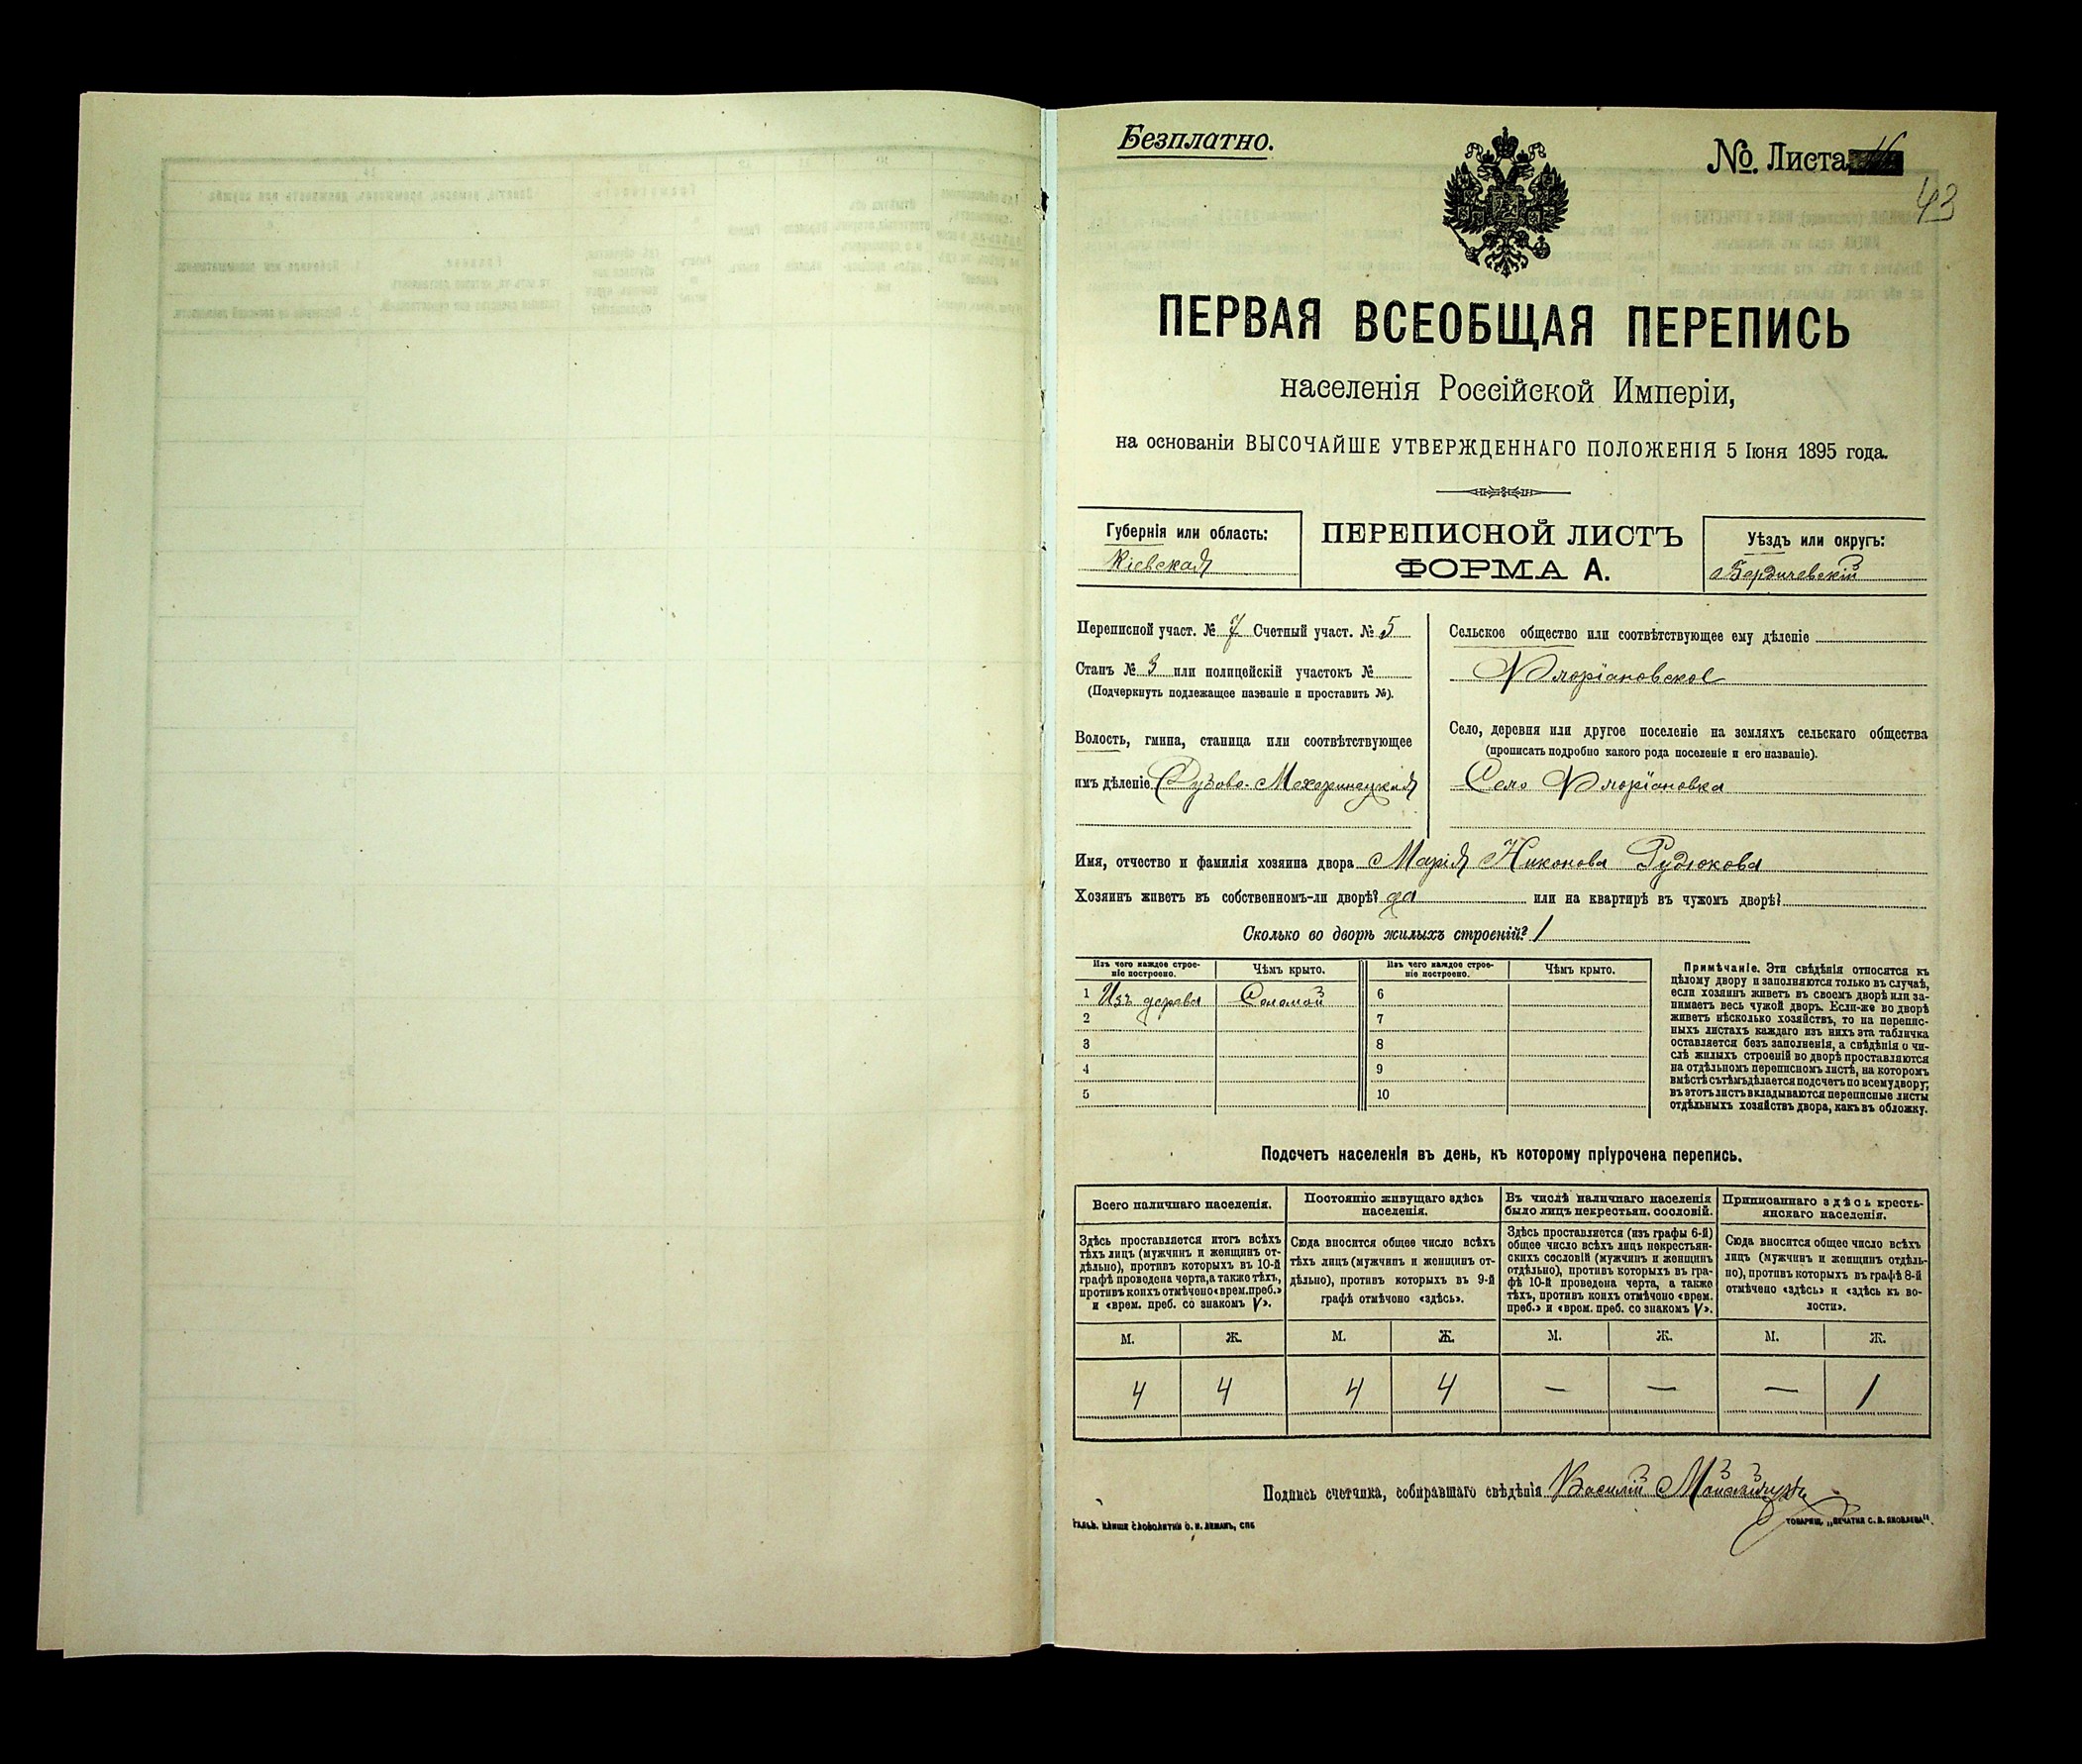 Безплатно.
№. Листа
43
ПЕРВАЯ ВСЕОБЩАЯ ПЕРЕПИСЬ
населенія Россійской Имперіи,
на основаніи ВЫСОЧАЙШЕ УТВЕРЖДЕННАГО ПОЛОЖЕНІЯ 5 Іюня 1895 года.
Губернія или область:
Кіевская
ПЕРЕПИСНОЙ ЛИСТЪ
ФОРМА А.
Уѣздъ или округъ:
Бердичевскій
Переписной участ. № 7 Счетный участ. № 5
Станъ № 3 или полицейскій участокъ №
(Подчеркнуть подлежащее названіе и проставить №).
Волость, гмина, станица или соотвѣтствующее
имъ дѣленіе Махаринецкая
Сельское общество или соотвѣтствующее ему дѣленіе
Флоріановское
Село, деревня или другое поселеніе на земляхъ сельскаго общества
(прописать подробно какого рода поселеніе и его названіе).
Село Флоріановка
Имя, отчество и фамилія хозяина двора Марія Никонова Рудюкова
Хозяинъ живетъ въ собственномъ-ли дворѣ? да или на квартирѣ въ чужомъ дворѣ?
Сколько во дворѣ жилыхъ строеній? 1
Изъ чего каждое строе-
ніе построено.
Чѣмъ крыто.
Изъ чего каждое строе-
ніе построено.
Чѣмъ крыто.
1 Изъ дерева Соломой 6
2 7
3 8
4 9
5 10
Примѣчаніе. Эти свѣдѣнія относятся къ
цѣлому двору и заполняются только въ случаѣ,
если хозяинъ живетъ въ своемъ дворѣ или за-
нимаетъ весь чужой дворъ. Если-же во дворѣ
живетъ нѣсколько хозяйствъ, то на перепис-
ныхъ листахъ каждаго изъ нихъ эта табличка
оставляется безъ заполненія, а свѣдѣнія о чи-
слѣ жилыхъ строеній во дворѣ проставляются
на отдѣльномъ переписномъ листѣ, на которомъ
вмѣстѣ съ тѣмъ дѣлается подсчетъ по всему двору;
въ этотъ листъ вкладываются переписные листы
отдѣльныхъ хозяйствъ двора, какъ въ обложку.
Подсчетъ населенія въ день, къ которому пріурочена перепись.
Всего наличнаго населенія.
Здѣсь проставляется итогъ всѣхъ
тѣхъ лицъ (мужчинъ и женщинъ от-
дѣльно), противъ которыхъ въ 10-й
графѣ проведена черта, а также тѣхъ,
противъ коихъ отмѣчено «врем. преб.»
и «врем. преб. со знакомъ V».
Постоянно живущаго здѣсь
населенія.
Сюда вносится общее число всѣхъ
тѣхъ лицъ (мужчинъ и женщинъ от-
дѣльно), противъ которыхъ въ 9-й
графѣ отмѣчено «здѣсь».
Въ числѣ наличнаго населенія
было лицъ некрестьян. сословій.
Здѣсь проставляется (изъ графы 6-й)
общее число всѣхъ лицъ некрестьян-
скихъ сословій (мужчинъ и женщинъ
отдѣльно), противъ которыхъ въ гра-
фѣ 10-й проведена черта, а также
тѣхъ, противъ коихъ отмѣчено «врем.
преб.» и «врем. преб. со знакомъ V».
Приписаннаго здѣсь кресть-
янскаго населенія.
Сюда вносится общее число всѣхъ
лицъ (мужчинъ и женщинъ отдѣль-
но), противъ которыхъ въ графѣ 8-й
отмѣчено «здѣсь» и «здѣсь къ во-
лости».
М. Ж. М. Ж. М. Ж. М. Ж.
4 4 4 4 — — — 1
Подпись счетчика, собиравшаго свѣдѣнія Василій
ГАЛЬВ. КЛИШЕ СЛОВОЛИТНИ О. И. ЛЕМАНЪ, СПБ
ТОВАРИЩ. „ПЕЧАТНЯ С. П. ЯКОВЛЕВА“.